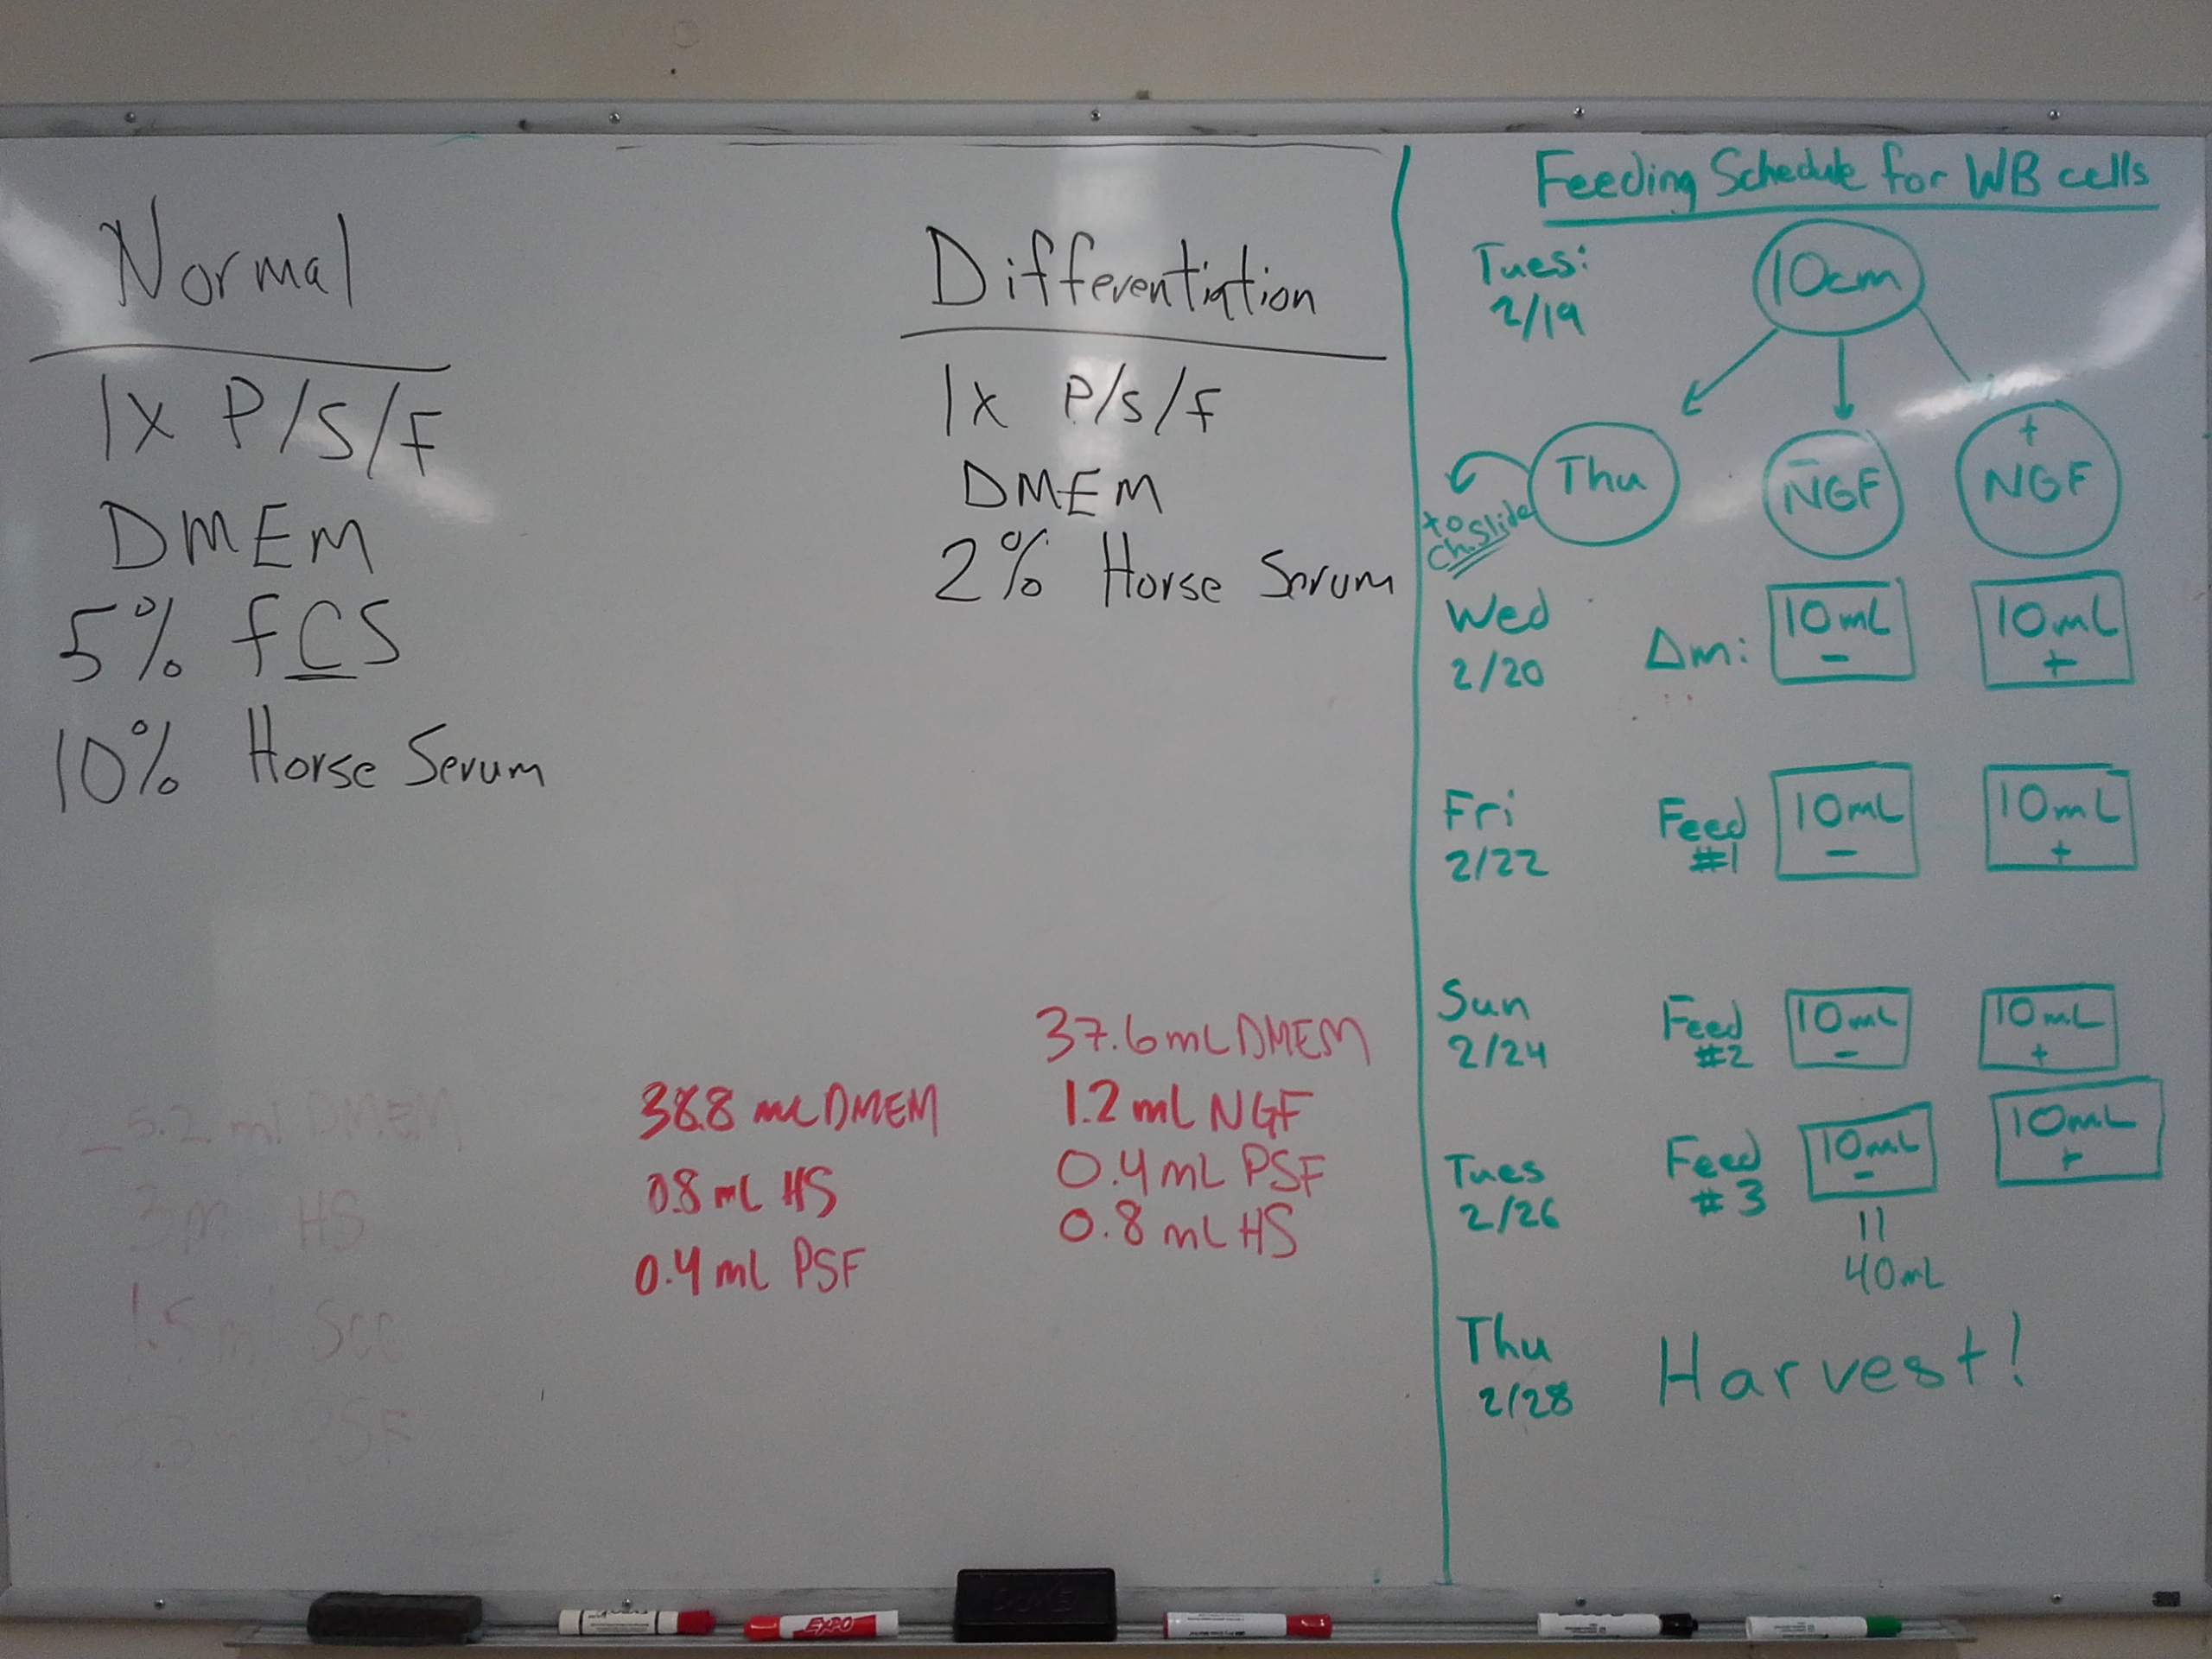 Normal
1x P/S/F
DMEM
5% FCS
10% Horse Serum
Differentiation
1x P/S/F
DMEM
2% Horse Serum
5.2 ml DMEM
3ml HS
1.5ml
PSF
38.8 mL DMEM
0.8 mL HS
0.4 mL PSF
37.6 mL DMEM
1.2 mL NGF
0.4 mL PSF
0.8 mL HS
Feeding Schedule for WB cells
Tues:
2/19
10cm
Thu
to
ch.slide
-
NGF
+
NGF
Wed
2/20
Δm:
10mL
-
10mL
+
Fri
2/22
Feed
#1
10mL
-
10mL
+
Sun
2/24
Feed
#2
10mL
-
10mL
+
Tues
2/26
Feed
#3
10mL
-
10mL
+
11
40mL
Thu
2/28
Harvest!
EXPO